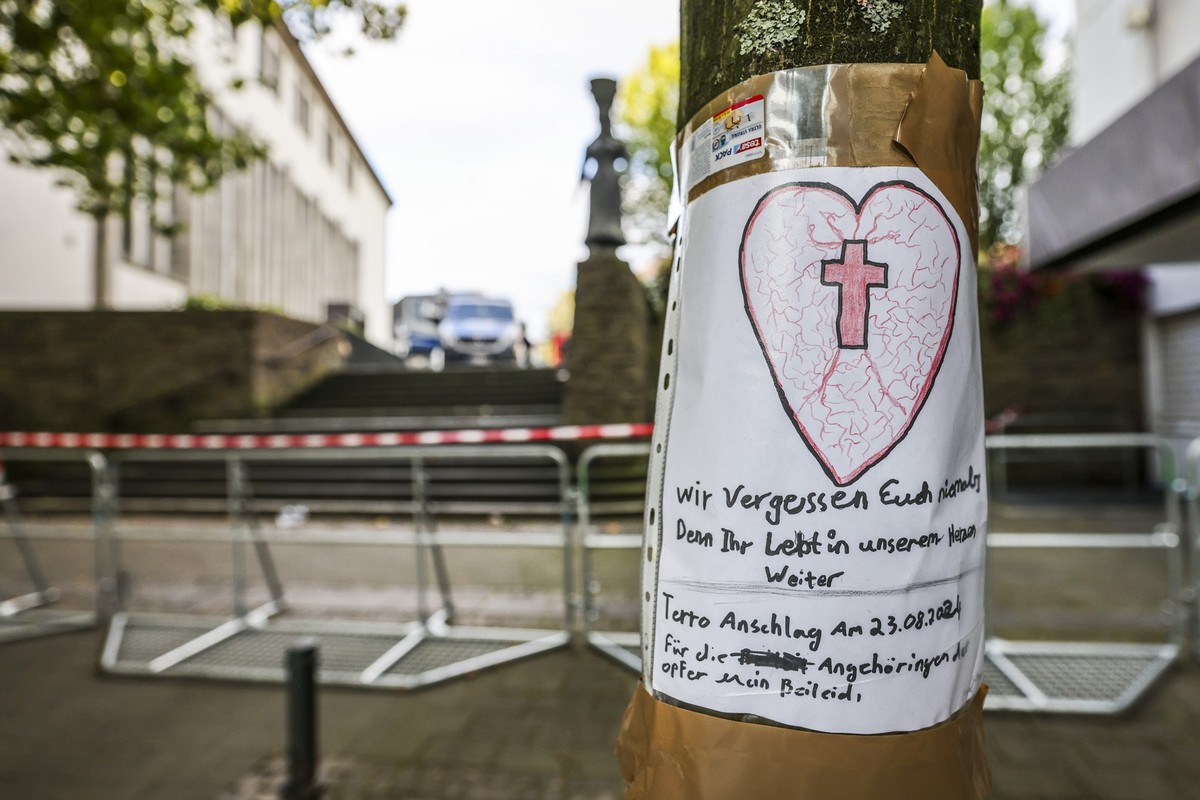 tesa PACK
ULTRA STRONG
wir Vergessen Euch niemals
Denn Ihr Lebt in unserem Herzen
Weiter
Terro Anschlag Am 23.08.2024
Für die Angehöringen der
opfer mein Beileid,